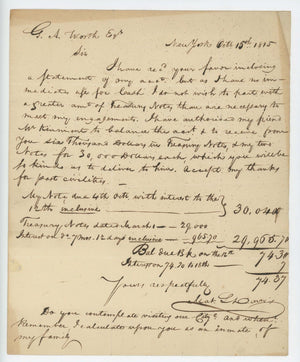 G. A. Worth Esqr
New York Octr 15th 1815
Sir
I have recd your favor inclosing
a Statement of my acct. but as I have no im-
mediate use for Cash I do not wish to part with
a greater amt of Treasury Notes than are necessary to
meet my engagements. I have authorised my friend
Mr to balance the acct & to receive from
You Six Thousand Dollars in Treasury Notes & my two
Notes for 30,000 Dollars each which you will be
so kind as to deliver to him. Accept my thanks
for past civilities —
My Note due 4th Octr with interest to the
12th inclusive
30,040
Treasury Notes dated March — 29,000
Interest on Do 7 mos. 12 days inclusive — 965.70
29,965.70
Bal due Bk on the 12th
74.30
Interest on 74.30 to 18th
7
74.37
Yours respectfully
Matt L Davis
Do you contemplate visiting our City and when?
Remember I calculate upon you as an inmate of
my family